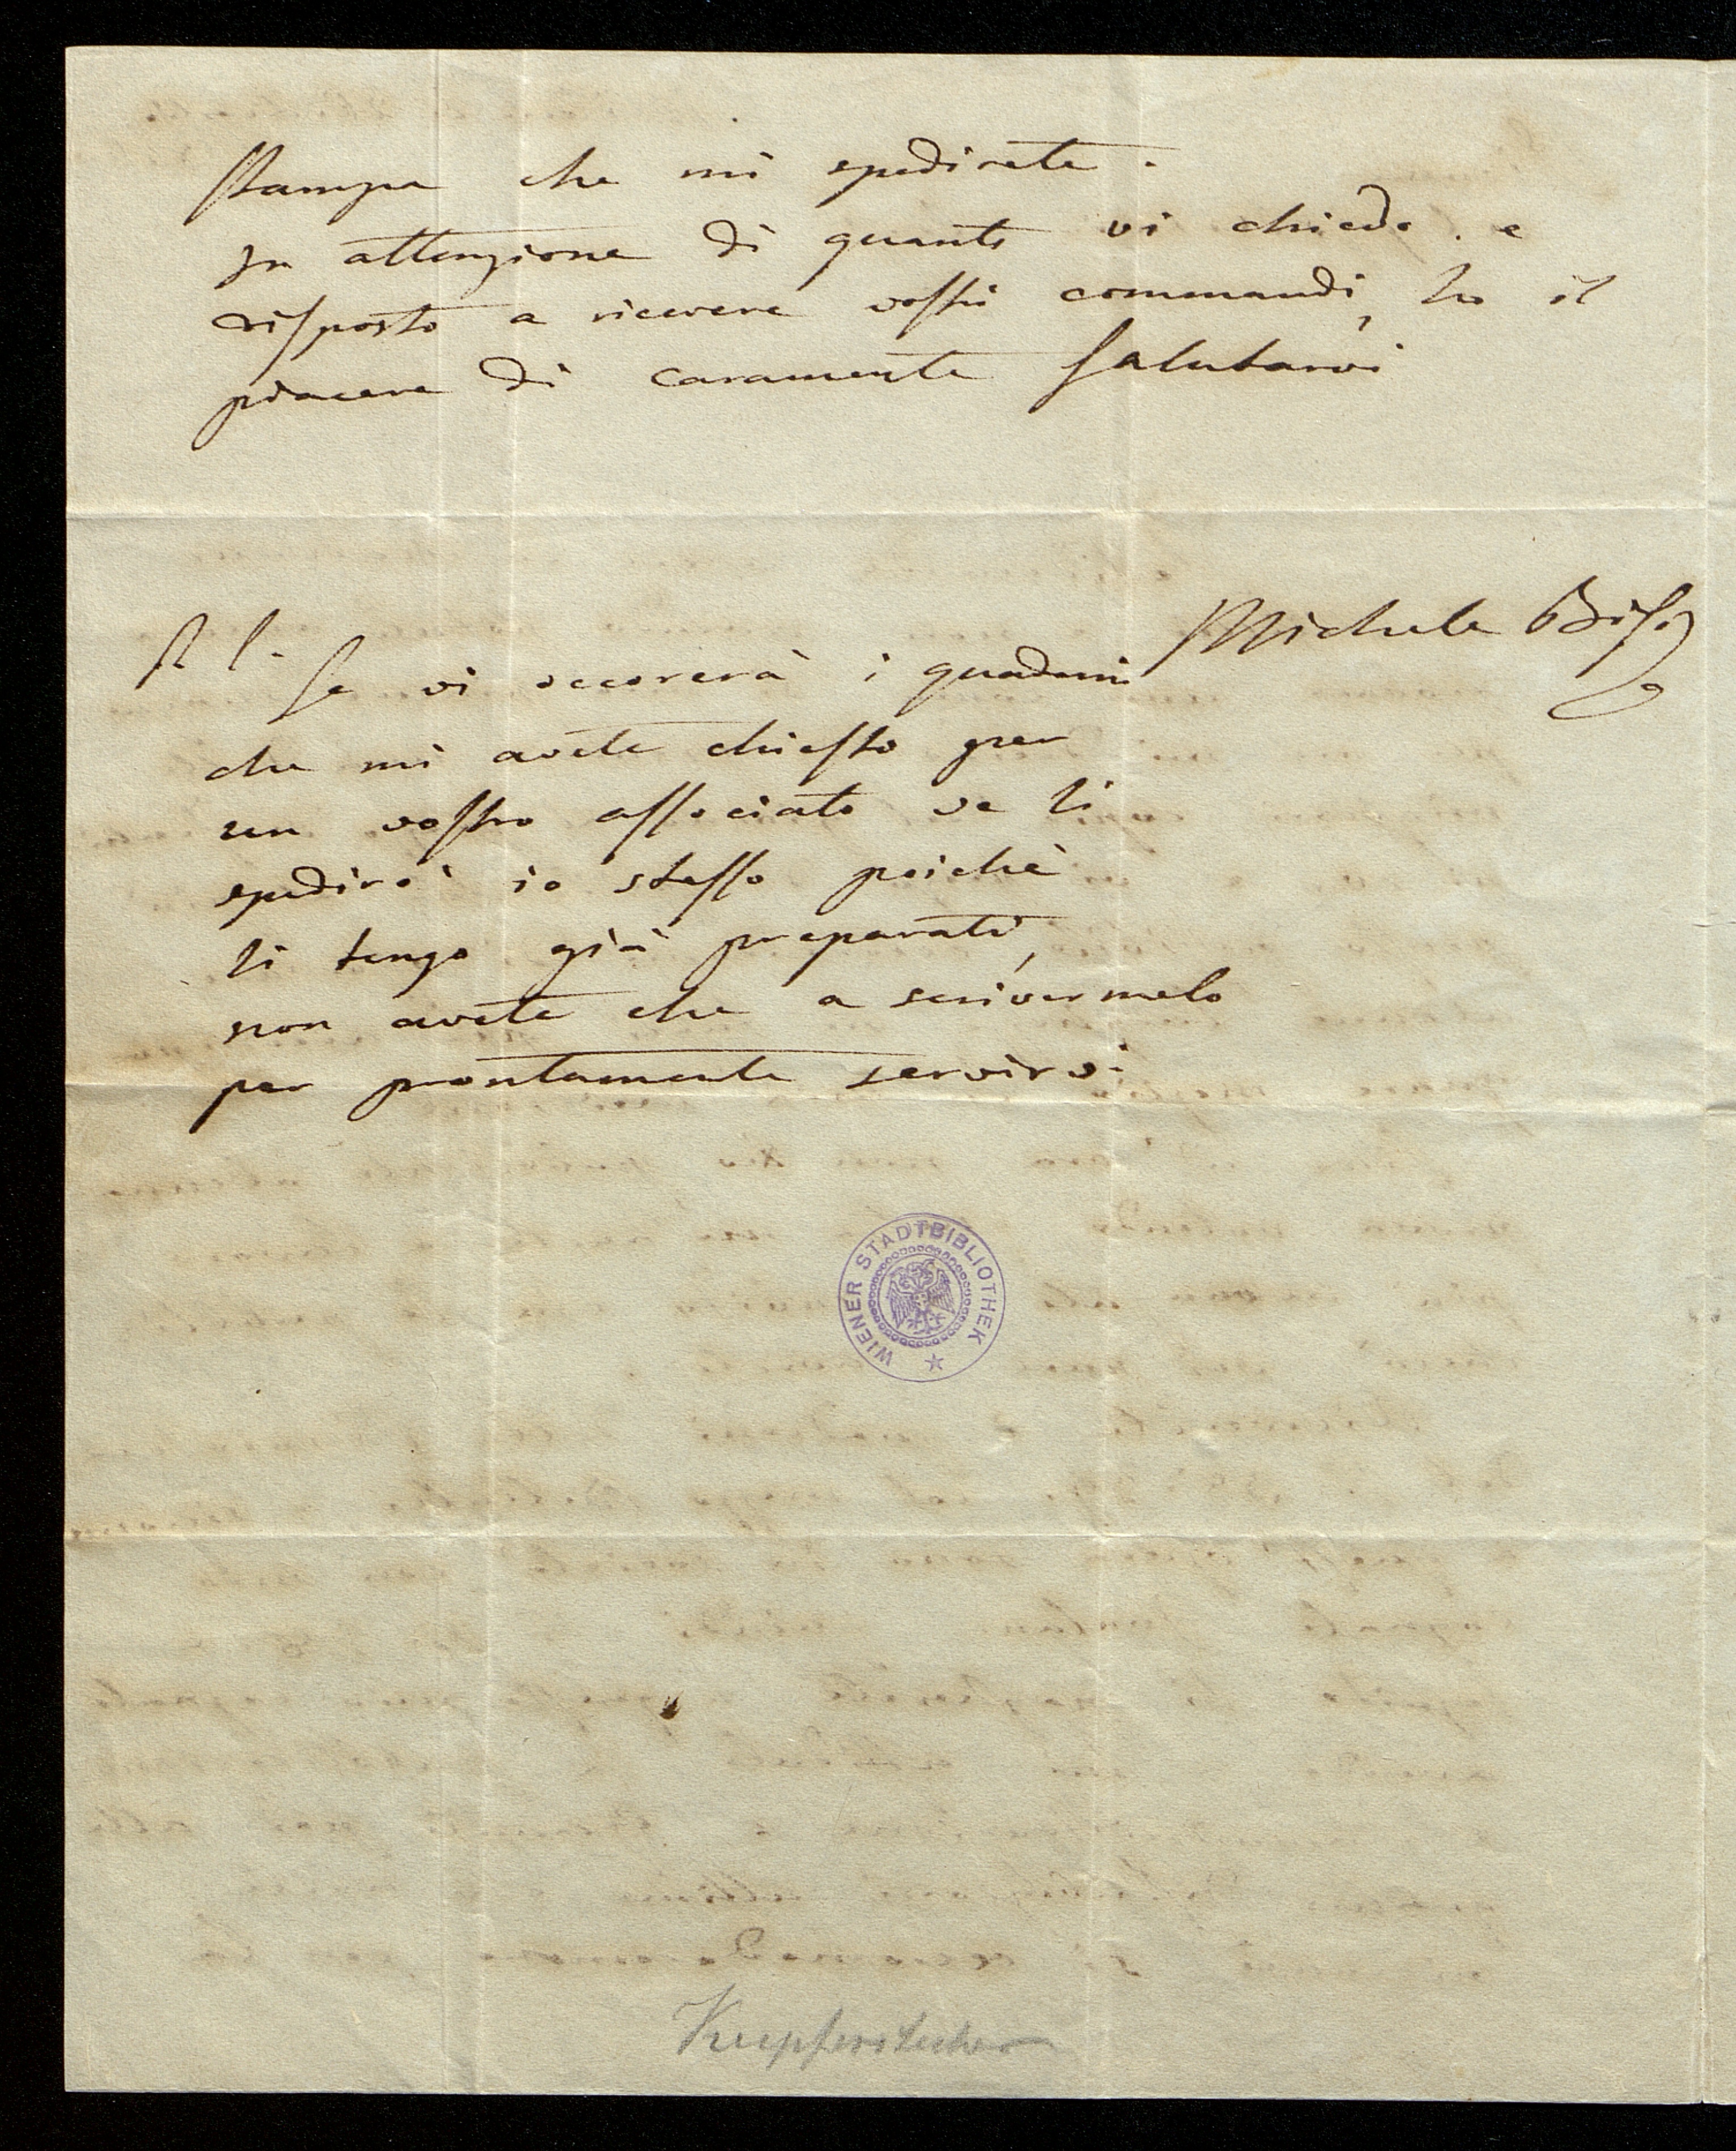 stampa che mi spedirete.
In attenzione di quanto vi chiedo. e
disposto a ricevere vostri commandi, ho il
piacere di caramente salutarvi
Michele Bisi
se vi occorerà i quaderni
che mi avete chiesto per
un vostro associato ve li
spedirò io stesso poichè
li tengo già preparati,
non avete che a scrivermelo
per prontamente servirvi
WIENER STADTBIBLIOTHEK
Kupferstecher